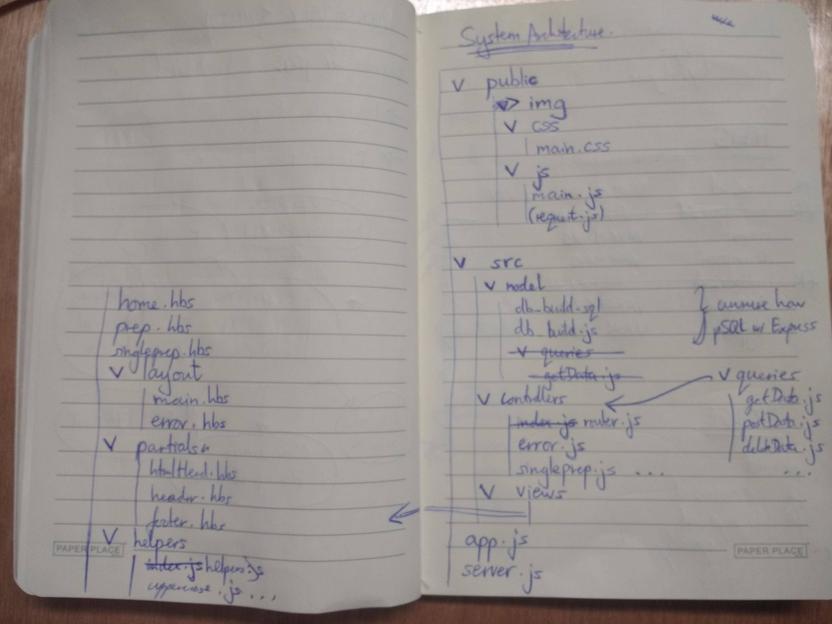 System Architecture.
V public
img
V css
main.css
V js
main.js
(request.js)
V src
V model
db_build.sql
db_build.js
V queries
getData.js
unsure how
pSQL w Express
V controllers
index.js router.js
error.js
singleprep.js ...
V queries
getData.js
postData.js
deleteData.js
...
V views
app.js
server.js
PAPER PLACE
home.hbs
prep.hbs
singleprep.hbs
V layout
main.hbs
error.hbs
V partials
htmlHead.hbs
header.hbs
footer.hbs
V helpers
index.js helpers.js
uppercase.js ...
PAPER PLACE